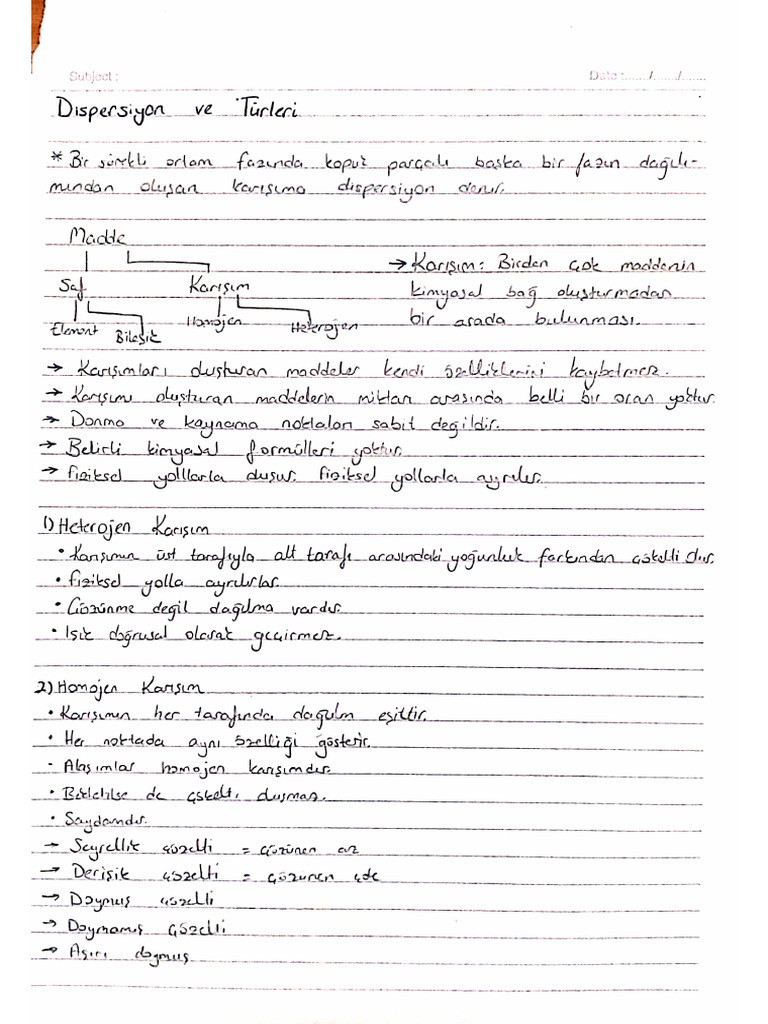 Subject : Date :....../....../......
Dispersiyon ve Türleri
* Bir sürekli ortam fazında kopuk parçalı başka bir fazın dağılı-
mından oluşan karışıma dispersiyon denir.
Madde
→ Karışım: Birden çok maddenin
Saf Karışım kimyasal bağ oluşturmadan
Element Bileşik Homojen Heterojen bir arada bulunması.
→ Karışımları oluşturan maddeler kendi özelliklerini kaybetmez.
→ Karışımı oluşturan maddelerin miktarı arasında belli bir oran yoktur.
→ Donma ve kaynama noktaları sabit değildir.
→ Belirli kimyasal formülleri yoktur.
→ fiziksel yolllarla oluşur. fiziksel yollarla ayrılır.
1) Heterojen Karışım
• Karışımın üst tarafıyla alt tarafı arasındaki yoğunluk farkından çökelti olur.
• fiziksel yolla ayrılırlar.
• Çözünme değil dağılma vardır.
• Işık doğrusal olarak geçirmez.
2) Homojen Karışım
• Karışımın her tarafında dağılım eşittir.
• Her noktada aynı özelliği gösterir.
- Alaşımlar homojen karışımdır.
• de çökelti oluşmaz.
• Saydamdır.
→ Seyreltik çözelti = çözünen az
→ Derişik çözelti = çözünen çok
→ Doymuş çözelti
→ Doymamış çözelti
→ Aşırı doymuş